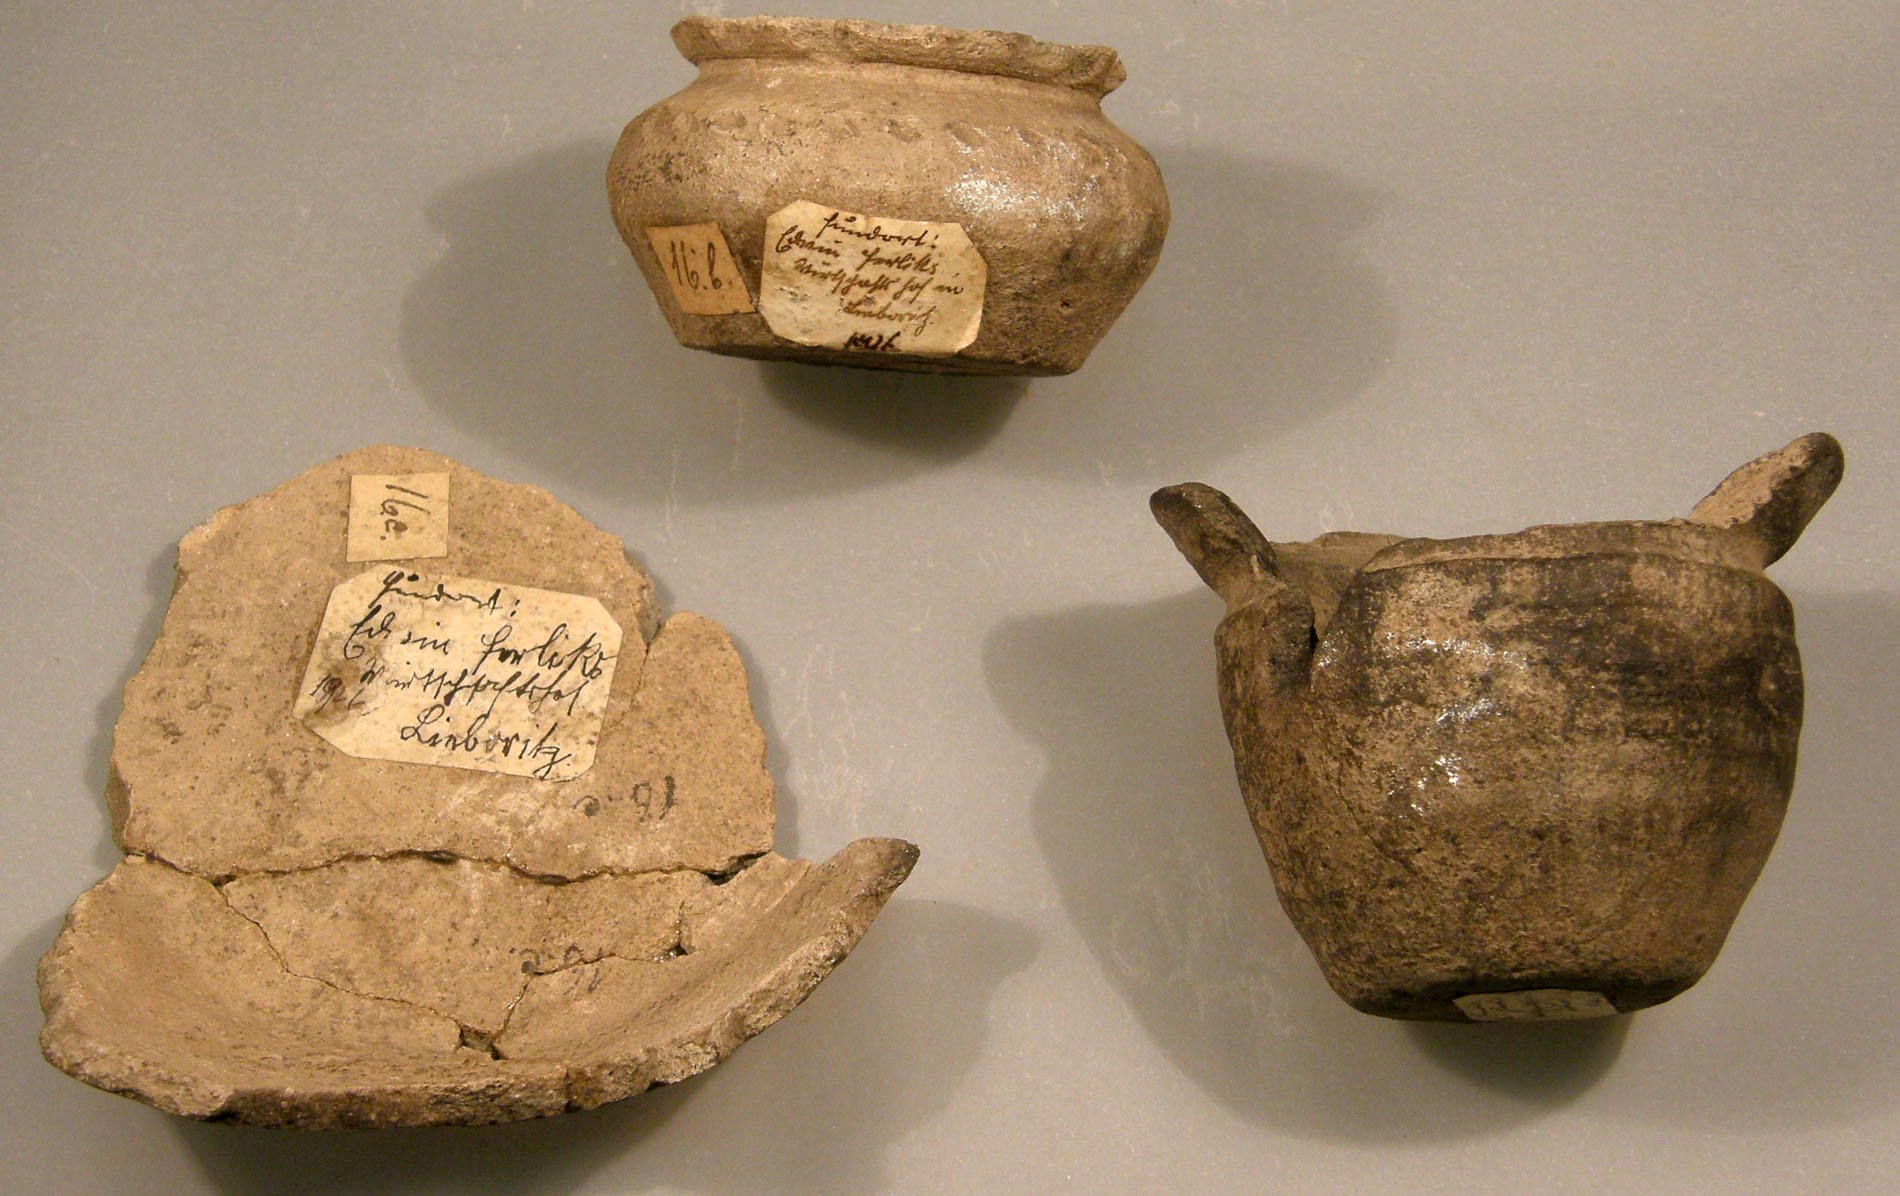 16.b.
Fundort:
Edwin Herliks
Wirtschaftshof in
Lieboritz.
1926
16c.
Fundort:
Edwin Herliks
Wirtschaftshof
1926
Lieboritz.
16-c
16-c.